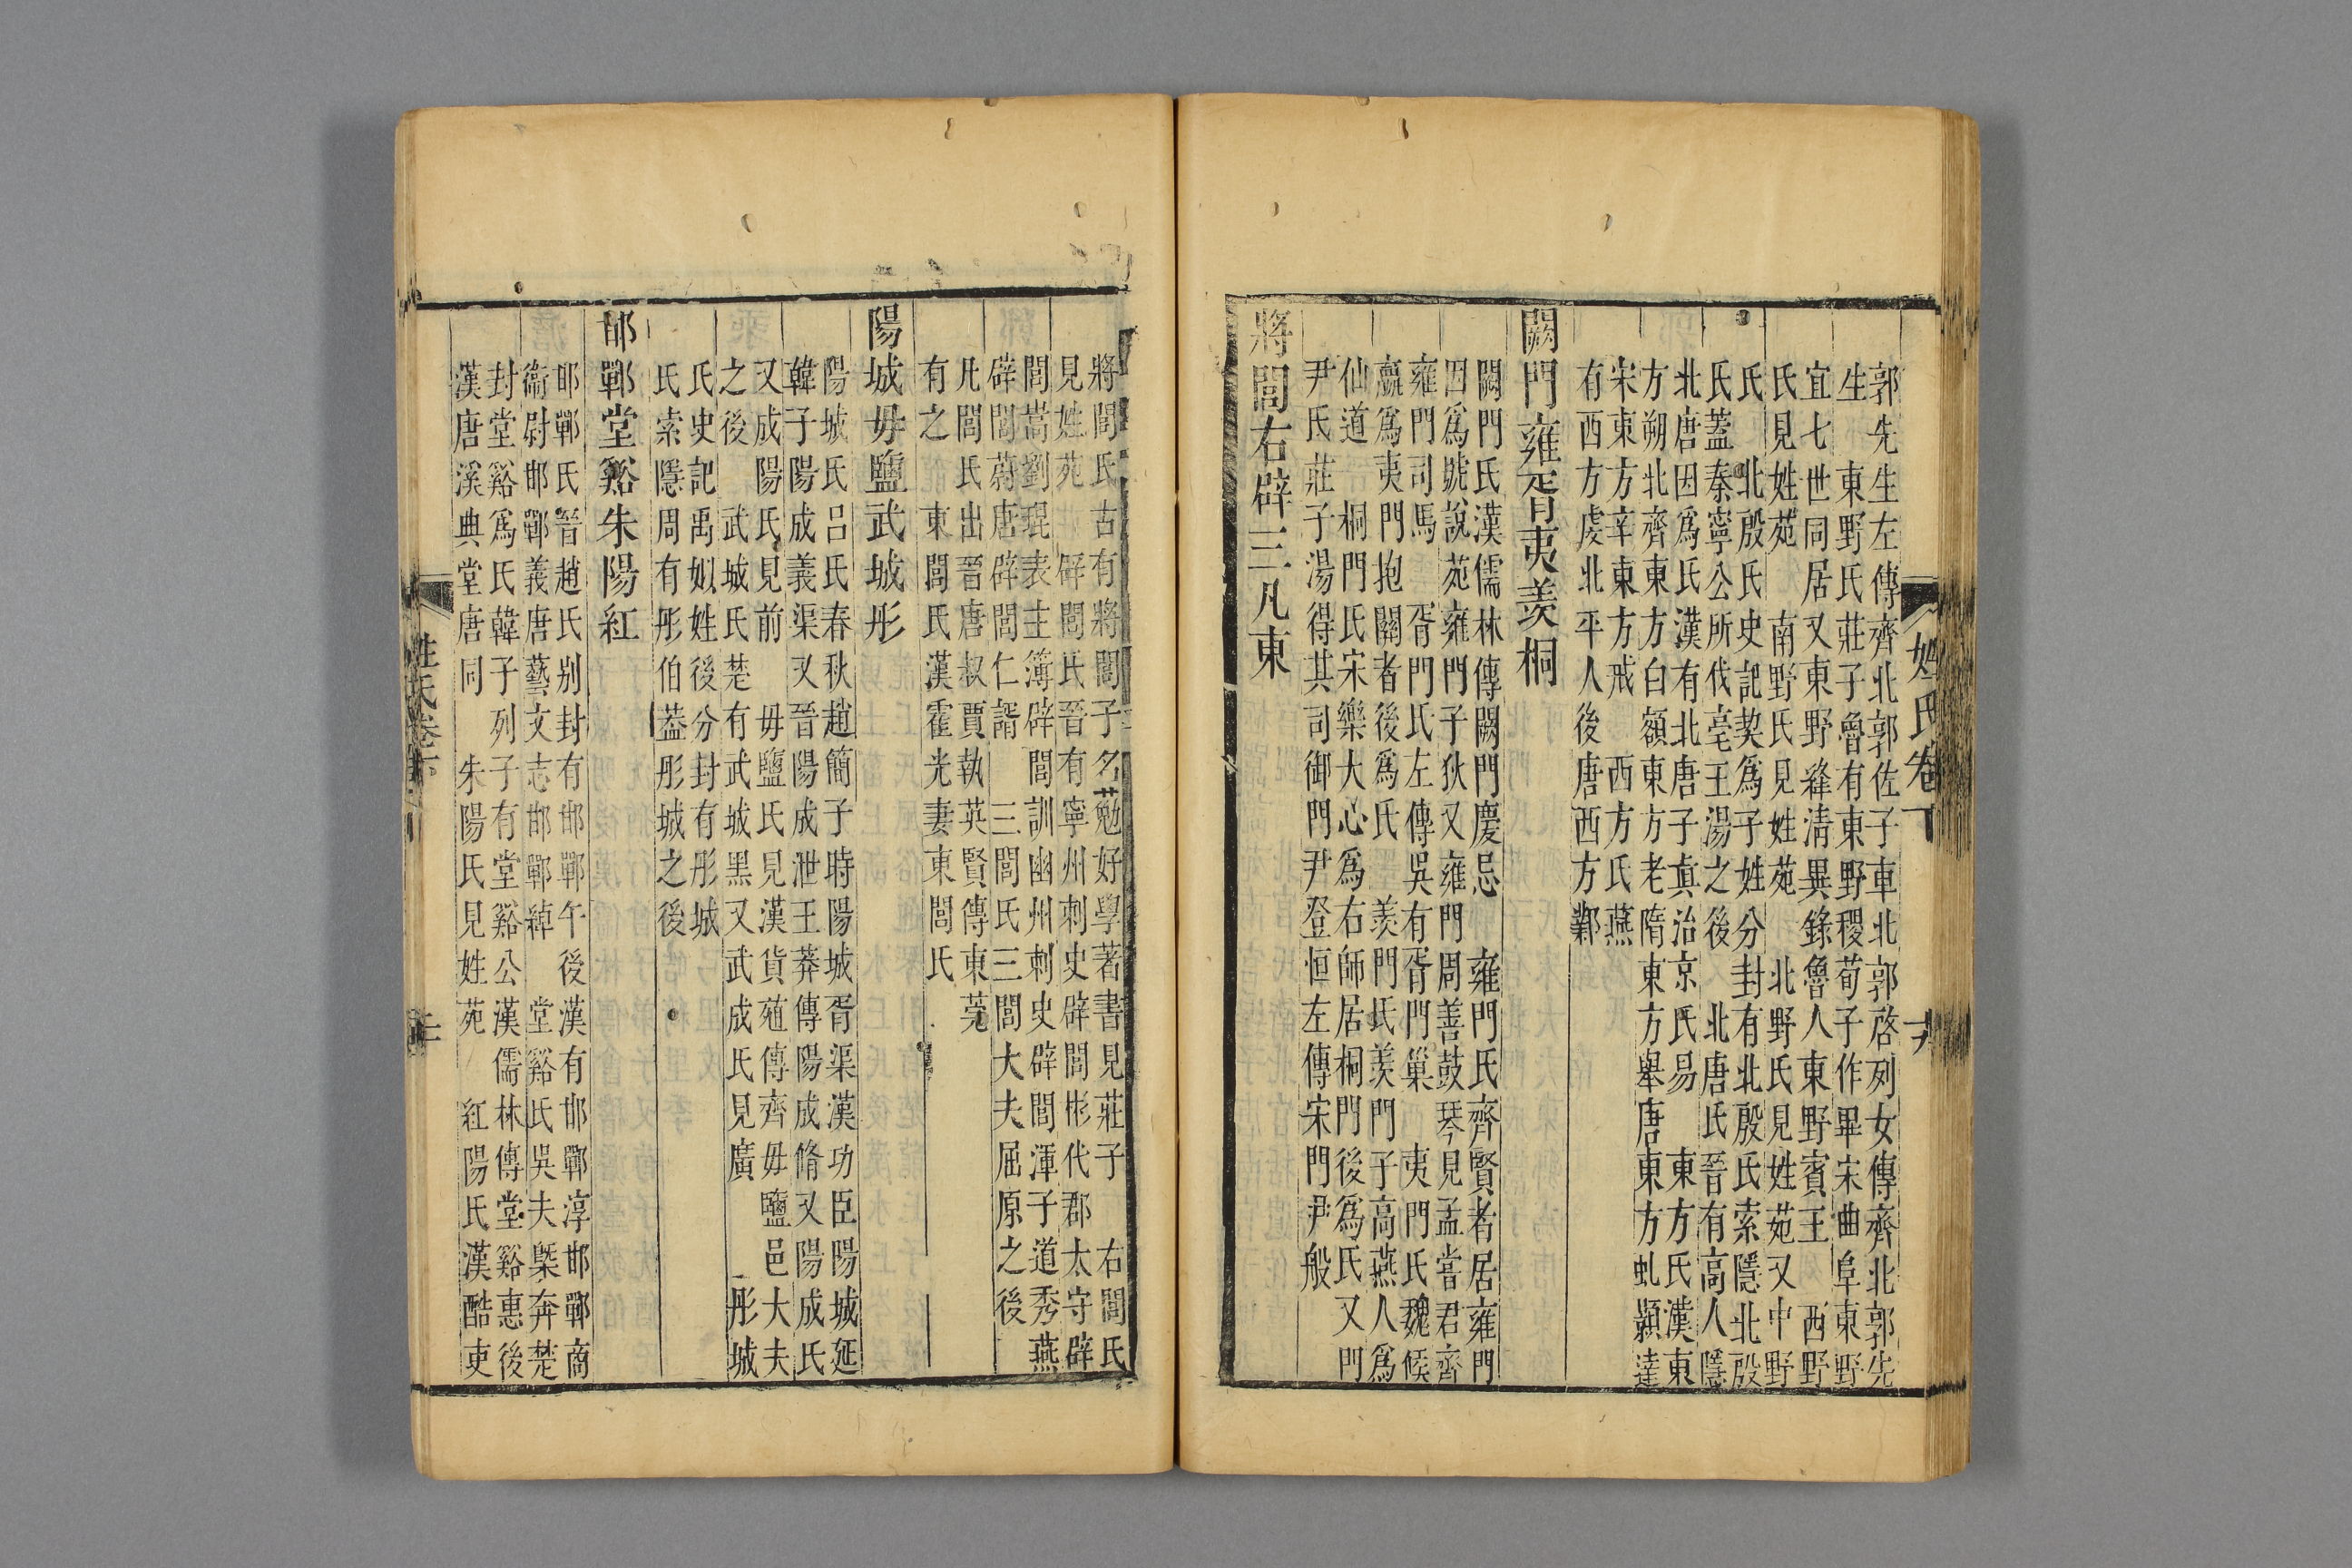 姓氏卷下
十九
郭先生左傳齊北郭佐子車北郭啓列女傳齊北郭先
生 東野氏莊子魯有東野稷荀子作畢宋曲阜東野
宜七世同居又東野絳淸異錄魯人東野賓王 西野
氏見姓苑 南野氏見姓苑 北野氏見姓苑又中野
氏 北殷氏史記契爲子姓分封有北殷氏索隱北殷
氏蓋秦寧公所伐亳王湯之後 北唐氏晉有高人隱
北唐因爲氏漢有北唐子眞治京氏易 東方氏漢東
方朔北齊東方白額東方老隋東方舉唐東方虬顥逵
宋東方辛東方戒 西方氏燕
有西方虔北平人後唐西方鄴
闕門雍門胥夷羨桐
闕門氏漢儒林傳闕門慶忌 雍門氏齊賢者居雍門
因爲號說苑雍門子狄又雍門周善鼓琴見孟嘗君齊
雍門司馬 胥門氏左傳吳有胥門巢 夷門氏魏候
嬴爲夷門抱關者後爲氏 羨門氏羨門子高燕人爲
仙道 桐門氏宋樂大心爲右師居桐門後爲氏又門
尹氏莊子湯得其司御門尹登恒左傳宋門尹般
將閭右辟三凡東
將閭氏古有將閭子名勉好學著書見莊子 右閭氏
見姓苑 辟閭氏晉有寧州刺史辟閭彬代郡太守辟
閭嵩劉琨表主簿辟閭訓幽州刺史辟閭渾子道秀燕
辟閭蔚唐辟閭仁諝 三閭氏三閭大夫屈原之後
凡閭氏出晉唐叔賈執英賢傳東莞
有之 東閭氏漢霍光妻東閭氏
陽城毋鹽武城彤
陽城氏呂氏春秋趙簡子時陽城胥渠漢功臣陽城延
韓子陽成義渠又晉陽成泄王莽傳陽成脩又陽成氏
又成陽氏見前 毋鹽氏見漢貨殖傳齊毋鹽邑大夫
之後 武城氏楚有武城黑又武成氏見廣 彤城
氏史記禹姒姓後分封有彤城
氏索隱周有彤伯葢彤城之後
邯鄲堂谿朱陽紅
邯鄲氏晉趙氏别封有邯鄲午後漢有邯鄲淳邯鄲商
衞尉邯鄲義唐藝文志邯鄲綽 堂谿氏吳夫槩奔楚
封堂谿爲氏韓子列子有堂谿公漢儒林傳堂谿惠後
漢唐溪典堂唐同 朱陽氏見姓苑 紅陽氏漢酷吏
姓氏卷下
二十